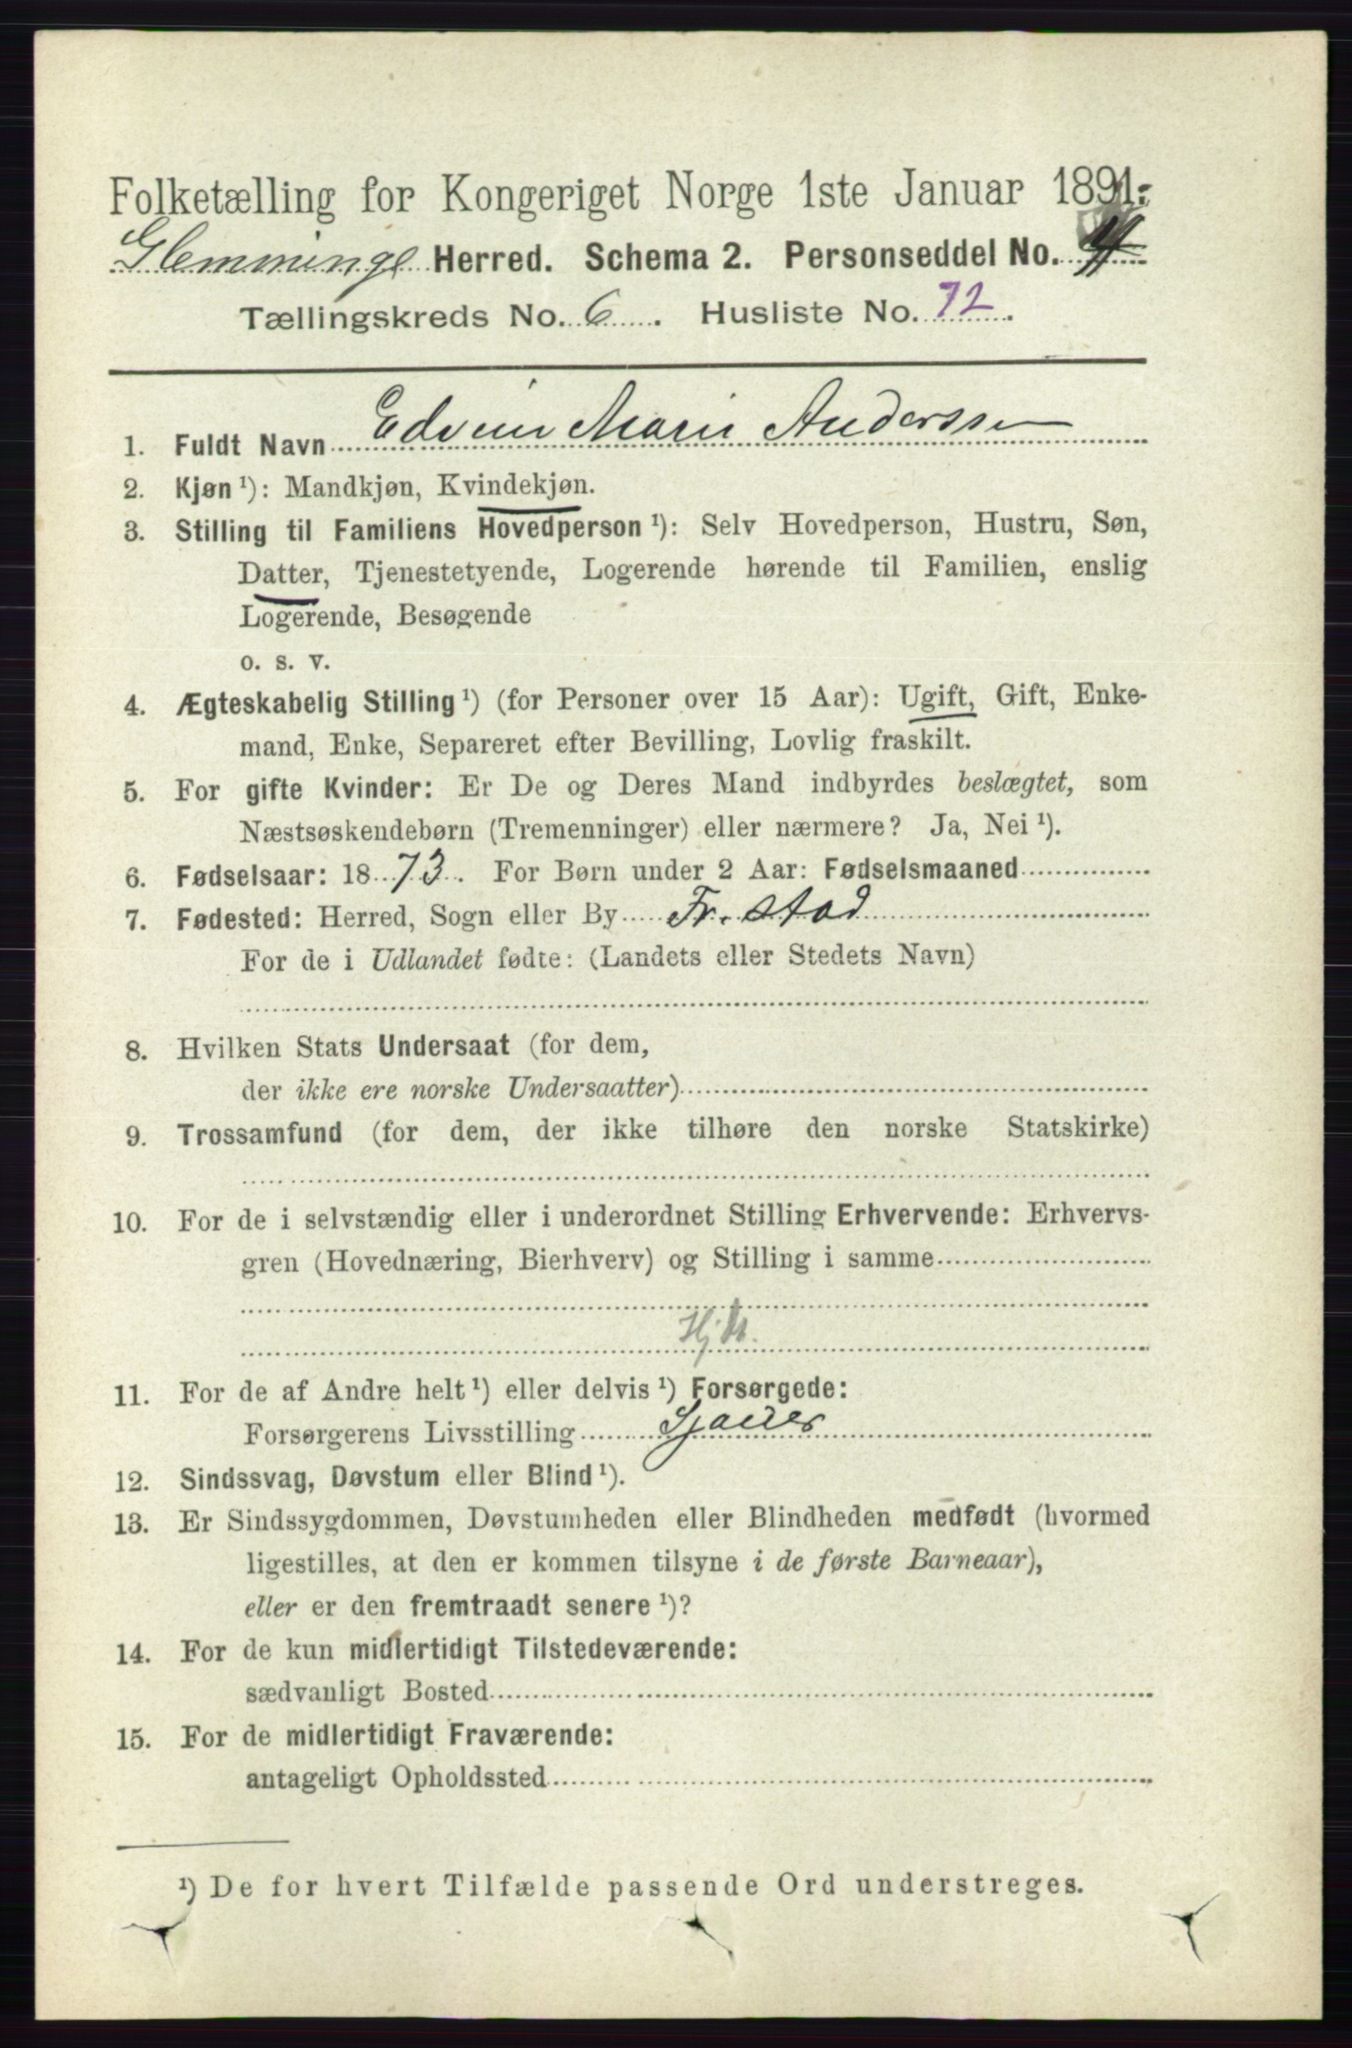 Folketælling for Kongeriget Norge 1ste Januar 1891.
Glemminge Herred. Schema 2. Personseddel No. 4
Tællingskreds No. 6. Husliste No. 72.
1. Fuldt Navn Edvine Marie Anderssen
2. Kjøn ¹): Mandkjøn, Kvindekjøn.
3. Stilling til Familiens Hovedperson ¹): Selv Hovedperson, Hustru, Søn,
Datter, Tjenestetyende, Logerende hørende til Familien, enslig
Logerende, Besøgende
o. s. v.
4. Ægteskabelig Stilling ¹) (for Personer over 15 Aar): Ugift, Gift, Enke-
mand, Enke, Separeret efter Bevilling, Lovlig fraskilt.
5. For gifte Kvinder: Er De og Deres Mand indbyrdes beslægtet, som
Næstsøskendebørn (Tremenninger) eller nærmere? Ja, Nei ¹).
6. Fødselsaar: 1873. For Børn under 2 Aar: Fødselsmaaned
7. Fødested: Herred, Sogn eller By Fr.stad
For de i Udlandet fødte: (Landets eller Stedets Navn)
8. Hvilken Stats Undersaat (for dem,
der ikke ere norske Undersaatter)
9. Trossamfund (for dem, der ikke tilhøre den norske Statskirke)
10. For de i selvstændig eller i underordnet Stilling Erhvervende: Erhvervs-
gren (Hovednæring, Bierhverv) og Stilling i samme
11. For de af Andre helt ¹) eller delvis ¹) Forsørgede:
Forsørgerens Livsstilling Sjauer
12. Sindssvag, Døvstum eller Blind ¹).
13. Er Sindssygdommen, Døvstumheden eller Blindheden medfødt (hvormed
ligestilles, at den er kommen tilsyne i de første Barneaar),
eller er den fremtraadt senere ¹)?
14. For de kun midlertidigt Tilstedeværende:
sædvanligt Bosted
15. For de midlertidigt Fraværende:
antageligt Opholdssted
¹) De for hvert Tilfælde passende Ord understreges.